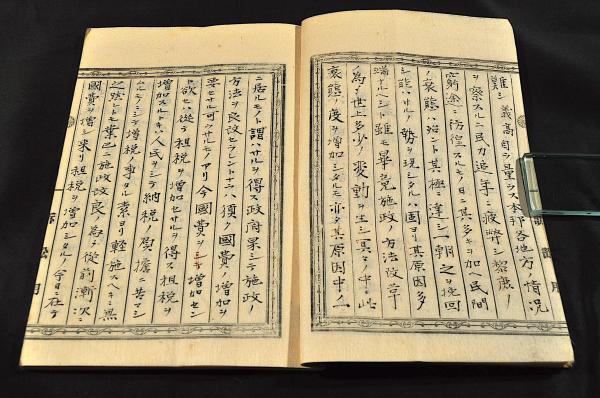 雖シ義高自ラ量ラス本邦各地方ノ情況
ヲ察スルニ民力逐年ニ疲弊シ黎庶ノ
窮途ニ彷徨スルモノ日ニ其多キヲ加ヘ民間
ノ衰態ハ殆ント其極ニ達シ一朝之ヲ挽回
シ能ハサルノ勢ヲ現シタルハ固ヨリ其原因多
端ナルヘシト雖モ畢竟施政ノ方法改革
ノ為メ世上多少ノ変動ヲ生シ其レカ中此
衰態ノ度ヲ増加シタルモ亦タ其原因中ノ一
ニ居ルモノト謂ハサルヲ得ス政府果シテ施政ノ
方法ヲ良改セラレントナラハ須ク國費ノ増加ヲ
要セサル可カラサルモノアリ今國費ヲシテ増加セシメント
欲セハ従テ租税ヲ増加セサルヲ得ス租税ヲ
増加スルトキハ人民ヲシテ納税ノ負擔ニ苦マシ
ムルヘシ而シテ増税ノ事タル素ヨリ輕施スヘキニ無
之候ヒトモ業已ニ施政改良ノ為メ従前漸次ニ
國費ヲ増シ來リ租税ヲ増加シタルノ今日ニ在テ